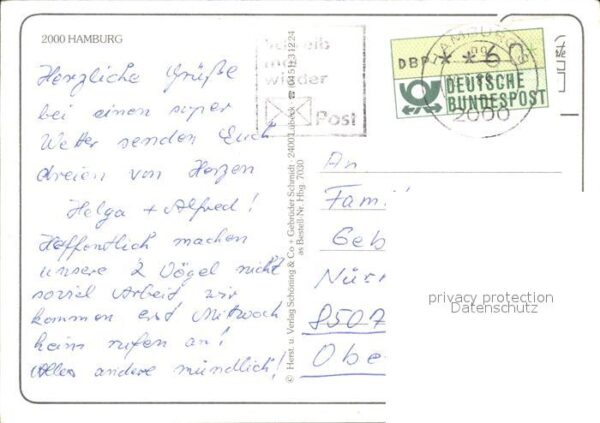 2000 HAMBURG
Herzliche Grüße
bei einen super
Wetter senden Euch
dreien von Herzen
Helga + Alfred!
Hoffentlich machen
unsere 2 Vögel nicht
soviel Arbeit wir
kommen erst Mittwoch
heim rufen an!
Alles andere mündlich!
© Herst. u. Verlag Schöning & Co + Gebrüder Schmidt, 2400 Lübeck ☎ 0451/31224
as Bestell-Nr. Hbg. 7030
Schreib
mal
wieder
Post
HAMBURG
2000
DBP * * 60 *
DEUTSCHE
BUNDESPOST
An
Fami
Geb
Nür
8507
Obe
privacy protection
Datenschutz